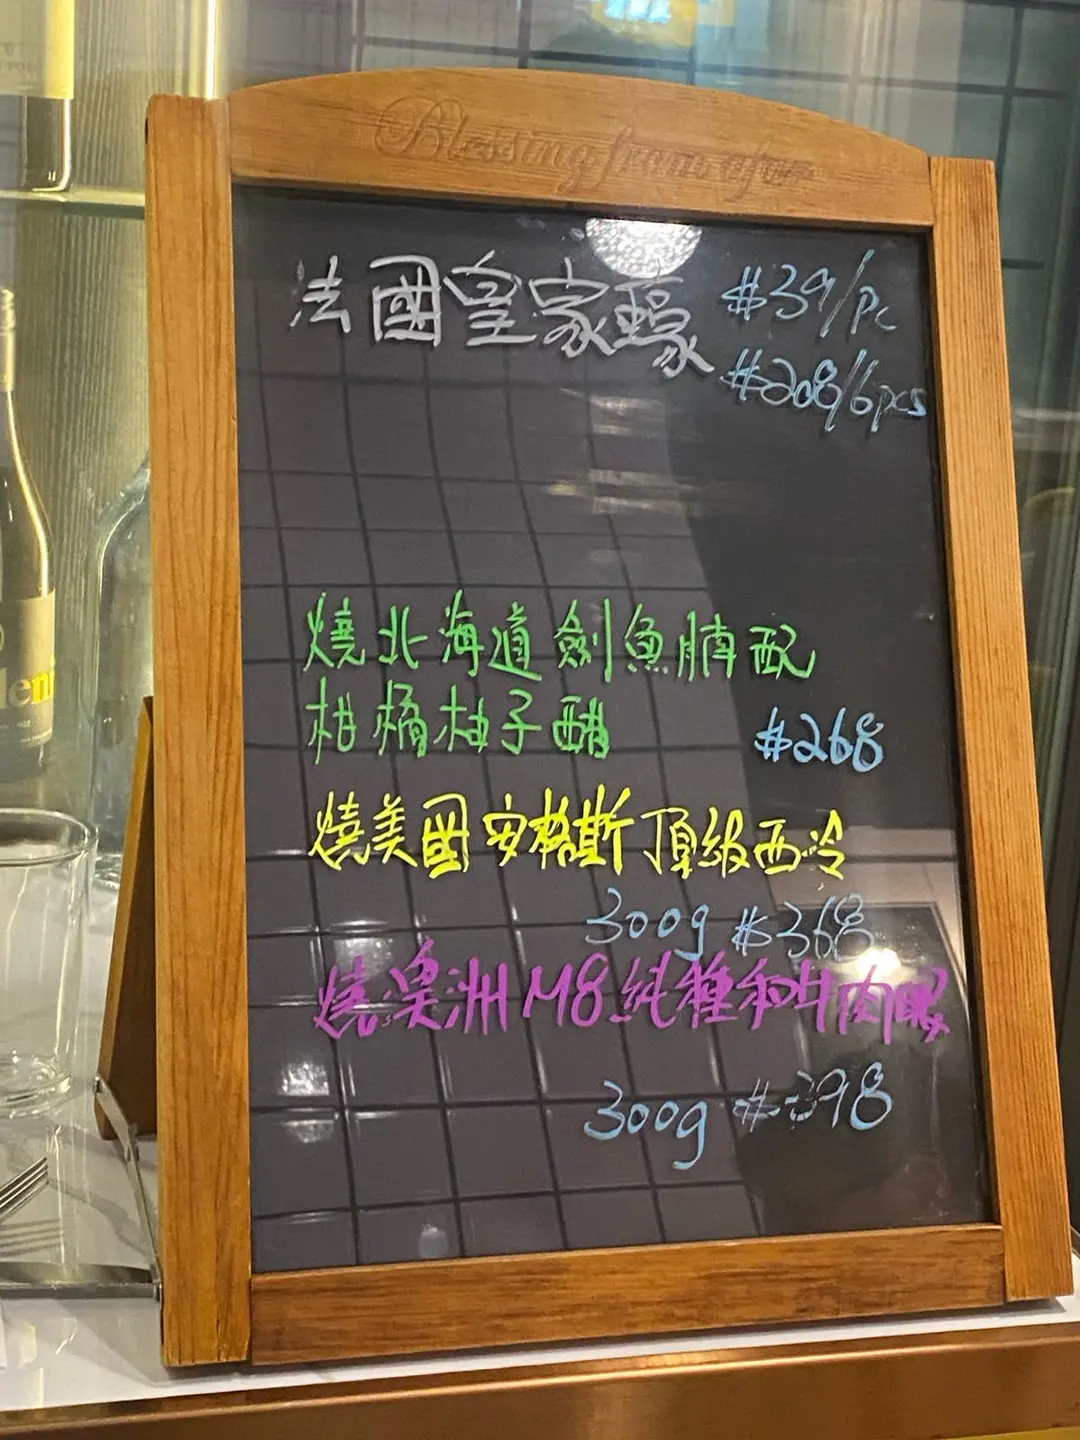 Blessing from afar
法國皇家蠔 $39/pc
$208/6pcs
燒北海道劍魚腩配
柑橘柚子醋 $268
燒美國安格斯頂級西冷
300g $368
燒澳洲M8純種和牛肉眼
300g $398